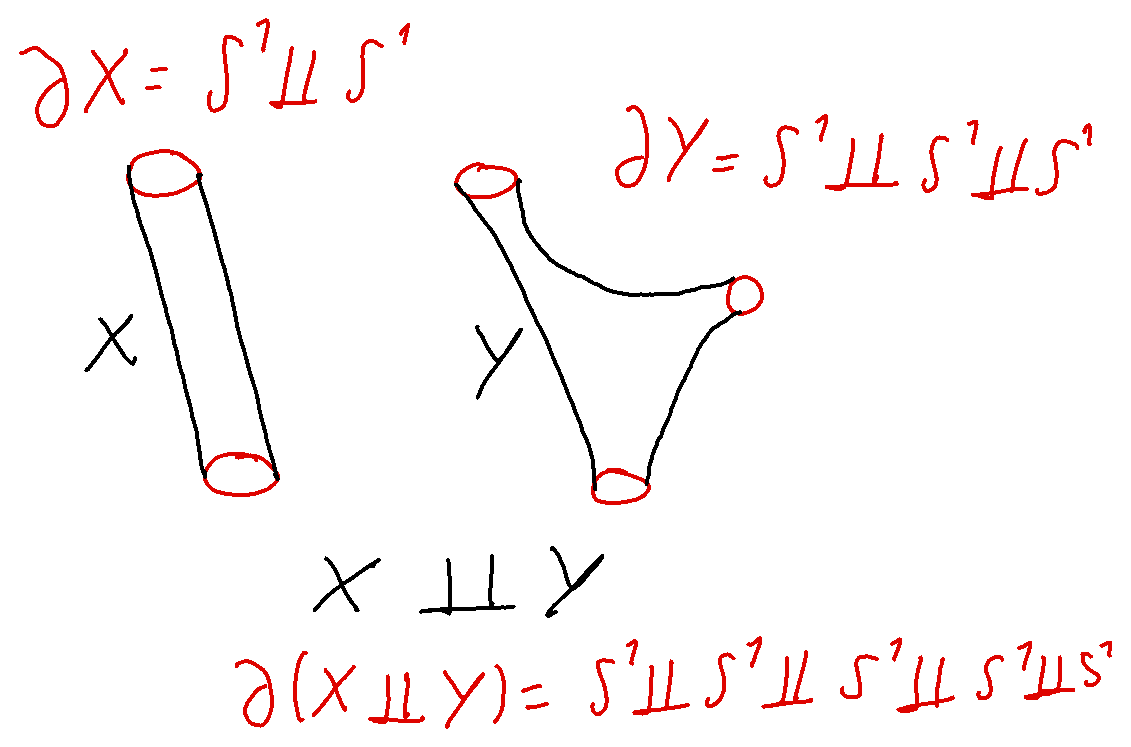 ∂X = S¹ ⨿ S¹
∂Y = S¹ ⨿ S¹ ⨿ S¹
X
Y
X ⨿ Y
∂(X ⨿ Y) = S¹ ⨿ S¹ ⨿ S¹ ⨿ S¹ ⨿ S¹